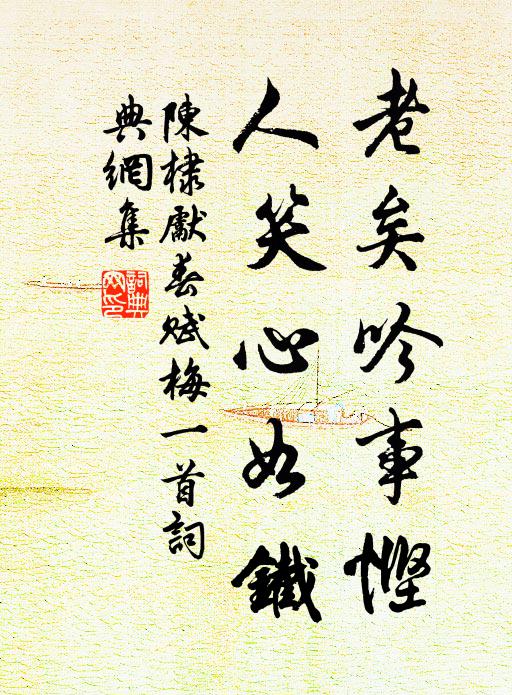 老矣吟事慳
人笑心如鐵
陳棣獻春賦梅一首詞
典網集
詞典
网印